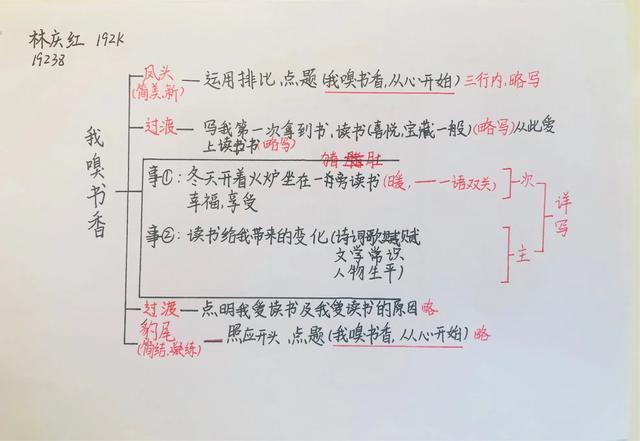 林庆红 192K
19238
我嗅书香
凤头 — 运用排比、点题(我嗅书香,从心开始) 三行内,略写
(简美、新)
过渡 — 写我第一次拿到书、读书(喜悦,宝藏一般)(略写)从此爱
上读书书 略写)
猪 肚
事①:冬天开着火炉坐在一旁读书(暖,— 一语双关) 次
幸福,享受
详写
事②:读书给我带来的变化(诗词歌赋赋
文学常识
人物生平)
主
过渡 — 点明我爱读书及我爱读书的原因 略
豹尾 — 照应开头、点题(我嗅书香,从心开始) 略
(简结、凝练)